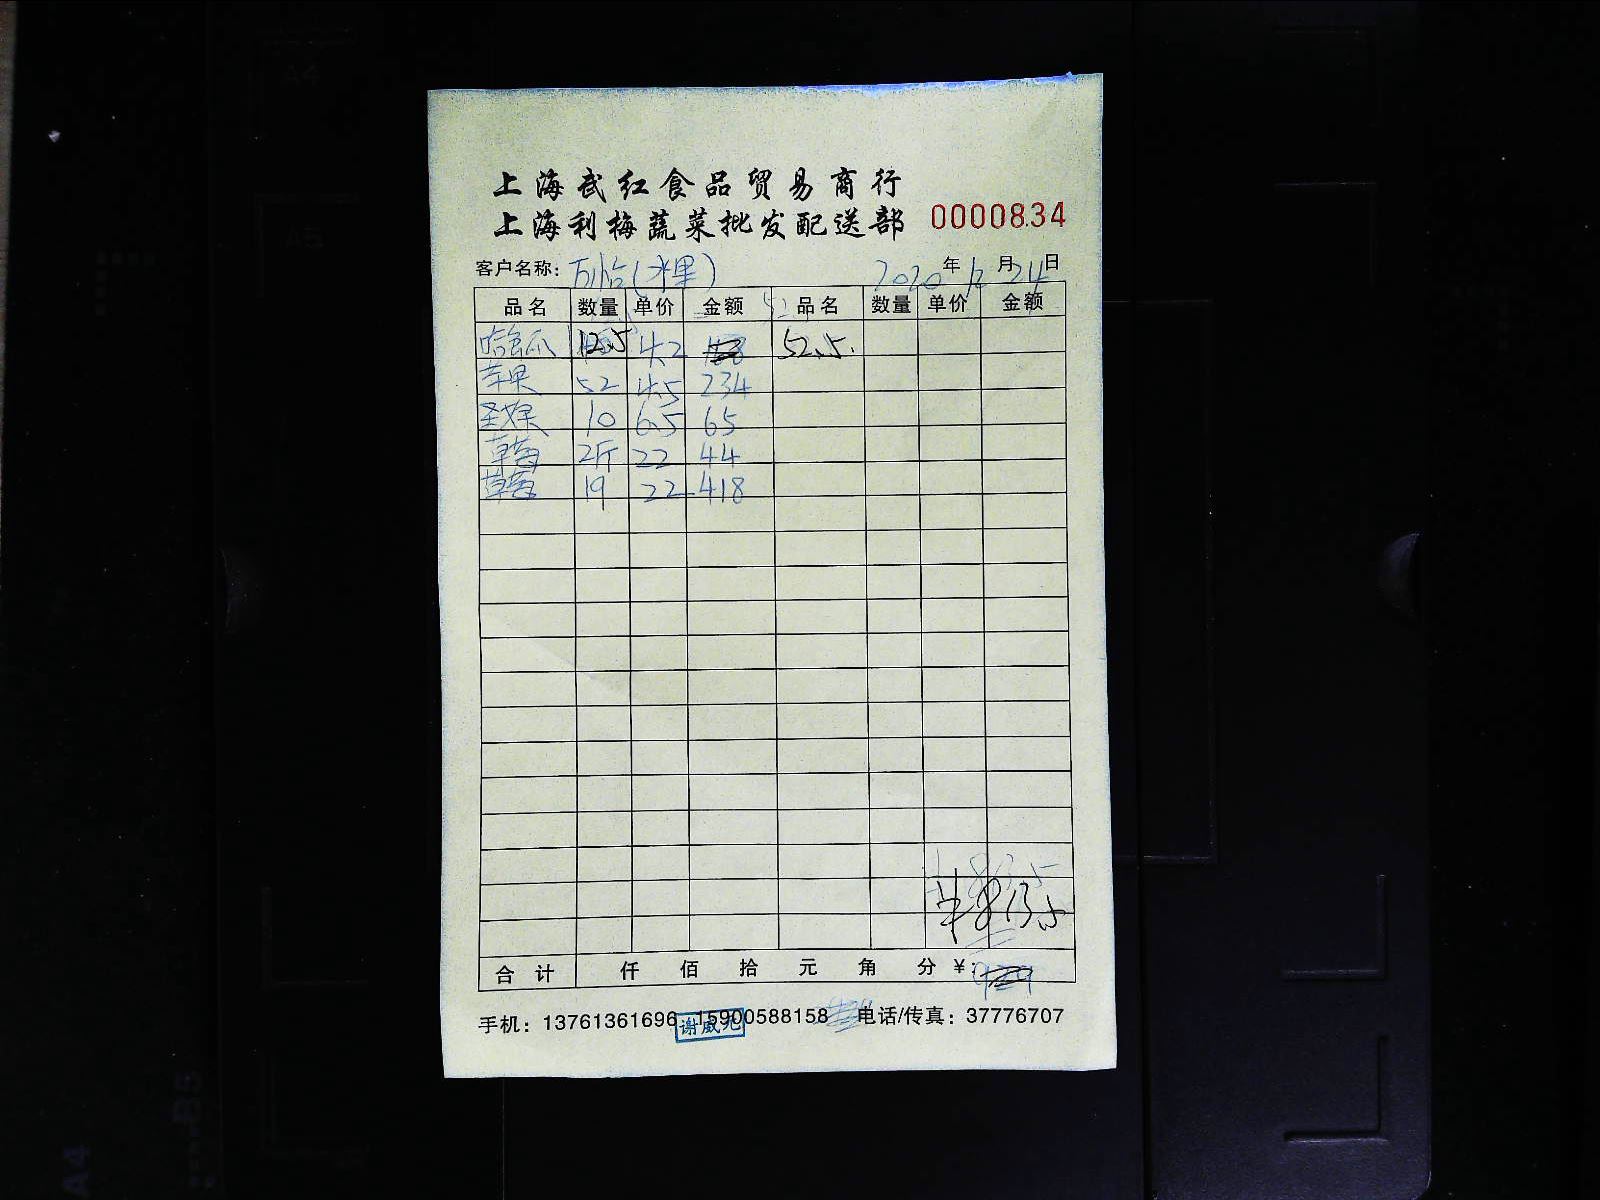 上海武红食品贸易商行
上海利梅蔬菜批发配送部 0000834
客户名称：万怡(水果) 2020年12月24日
品名 数量 单价 金额 品名 数量 单价 金额
哈密瓜 12.5 4.2 52.5.
苹果 52 4.5 234
圣女果 10 6.5 65
草莓 2斤 22 44
草莓 19 22 418
813.5
合计 仟 佰 拾 元 角 分 ¥：
手机：13761361696 15900588158 电话/传真：37776707
谢威光